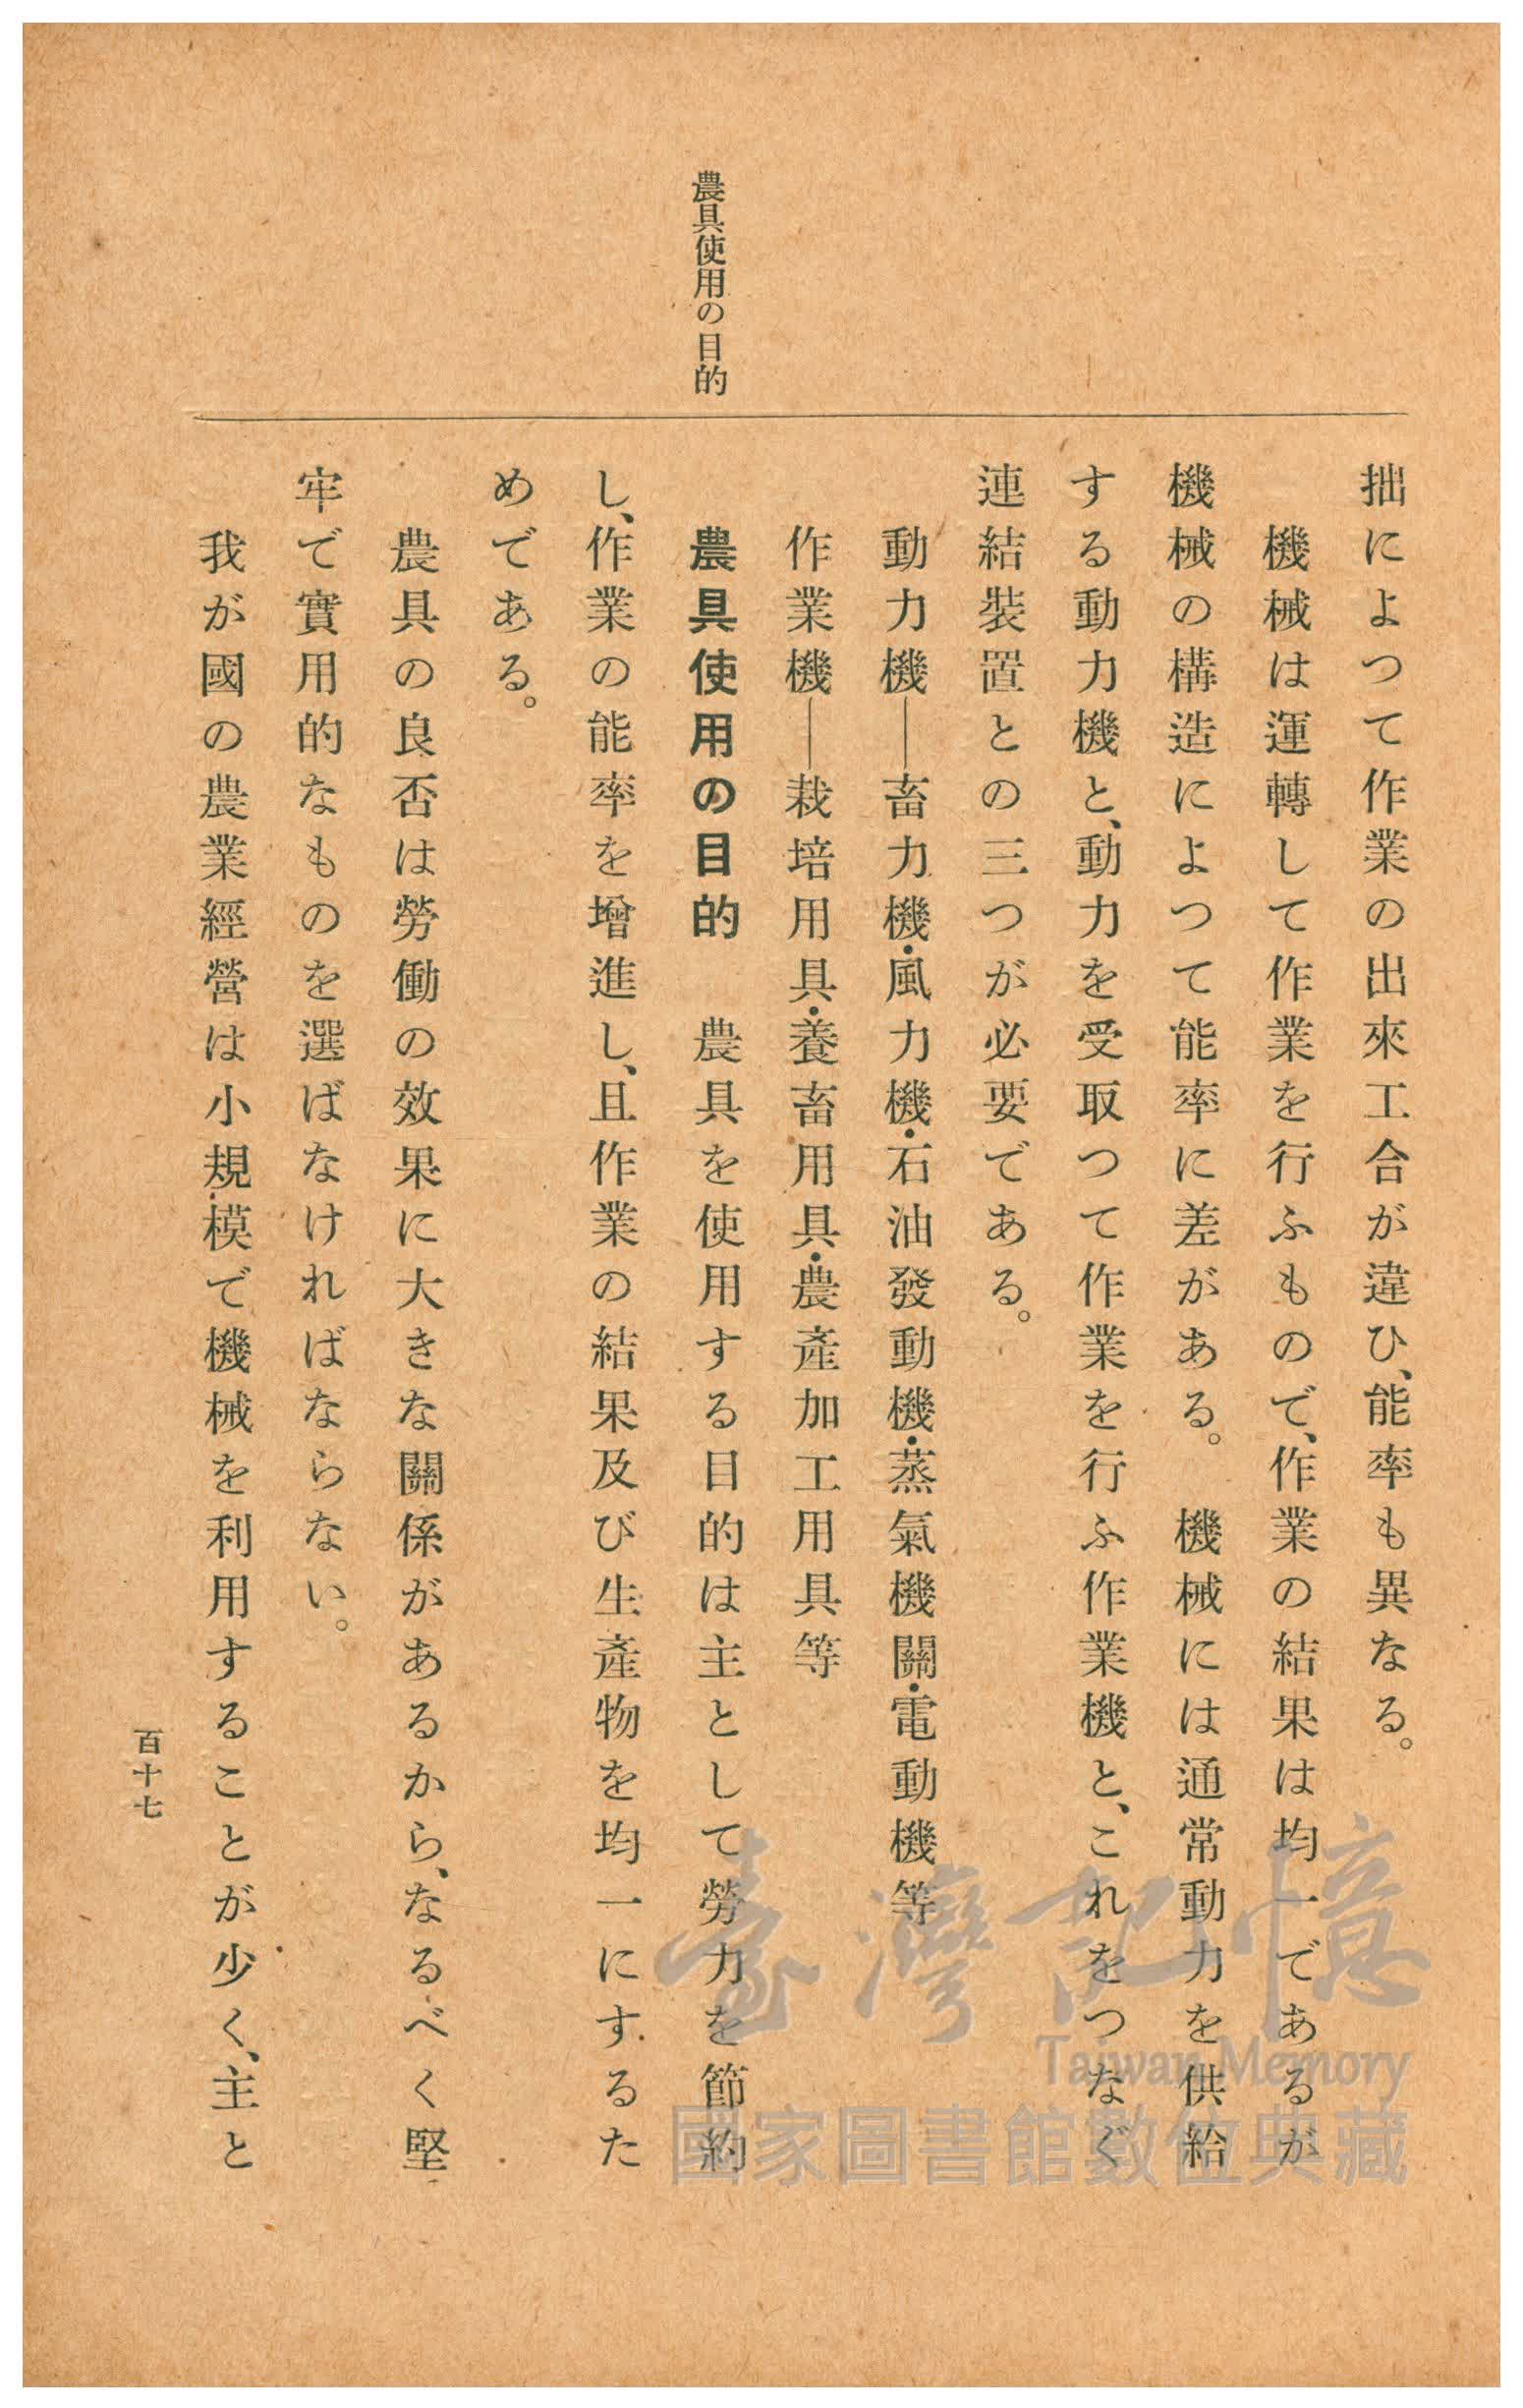 農具使用の目的
拙によつて作業の出來工合が違ひ、能率も異なる。
機械は運轉して作業を行ふもので、作業の結果は均一であるが
機械の構造によつて能率に差がある。　機械には通常動力を供給
する動力機と、動力を受取つて作業を行ふ作業機と、これをつなぐ
連結裝置との三つが必要である。
動力機──畜力機・風力機・石油發動機・蒸氣機關・電動機等
作業機──栽培用具・養畜用具・農產加工用具等
農具使用の目的　農具を使用する目的は主として勞力を節約
し、作業の能率を增進し、且作業の結果及び生產物を均一にするた
めである。
農具の良否は勞働の效果に大きな關係があるから、なるべく堅
牢で實用的なものを選ばなければならない。
我が國の農業經營は小規模で機械を利用することが少く、主と
百十七
臺灣記憶
Taiwan Memory
國家圖書館數位典藏